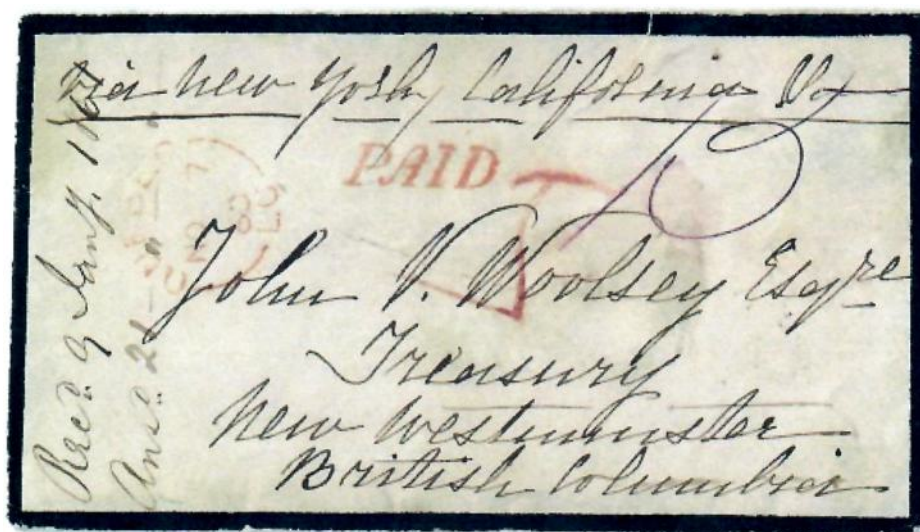 via New York, California Va
PAID
John V. Woolsey Esqre
Treasury
New Westminster
British Columbia
Recd. 9 Jany.
Ansd. 21